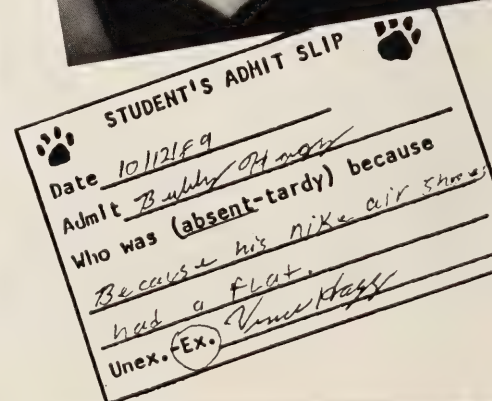 STUDENT'S ADMIT SLIP
Date 10/12/89
Admit Bubby
Who was (absent-tardy) because
Because his nike air shoes
had a flat.
Unex.-Ex. Vince